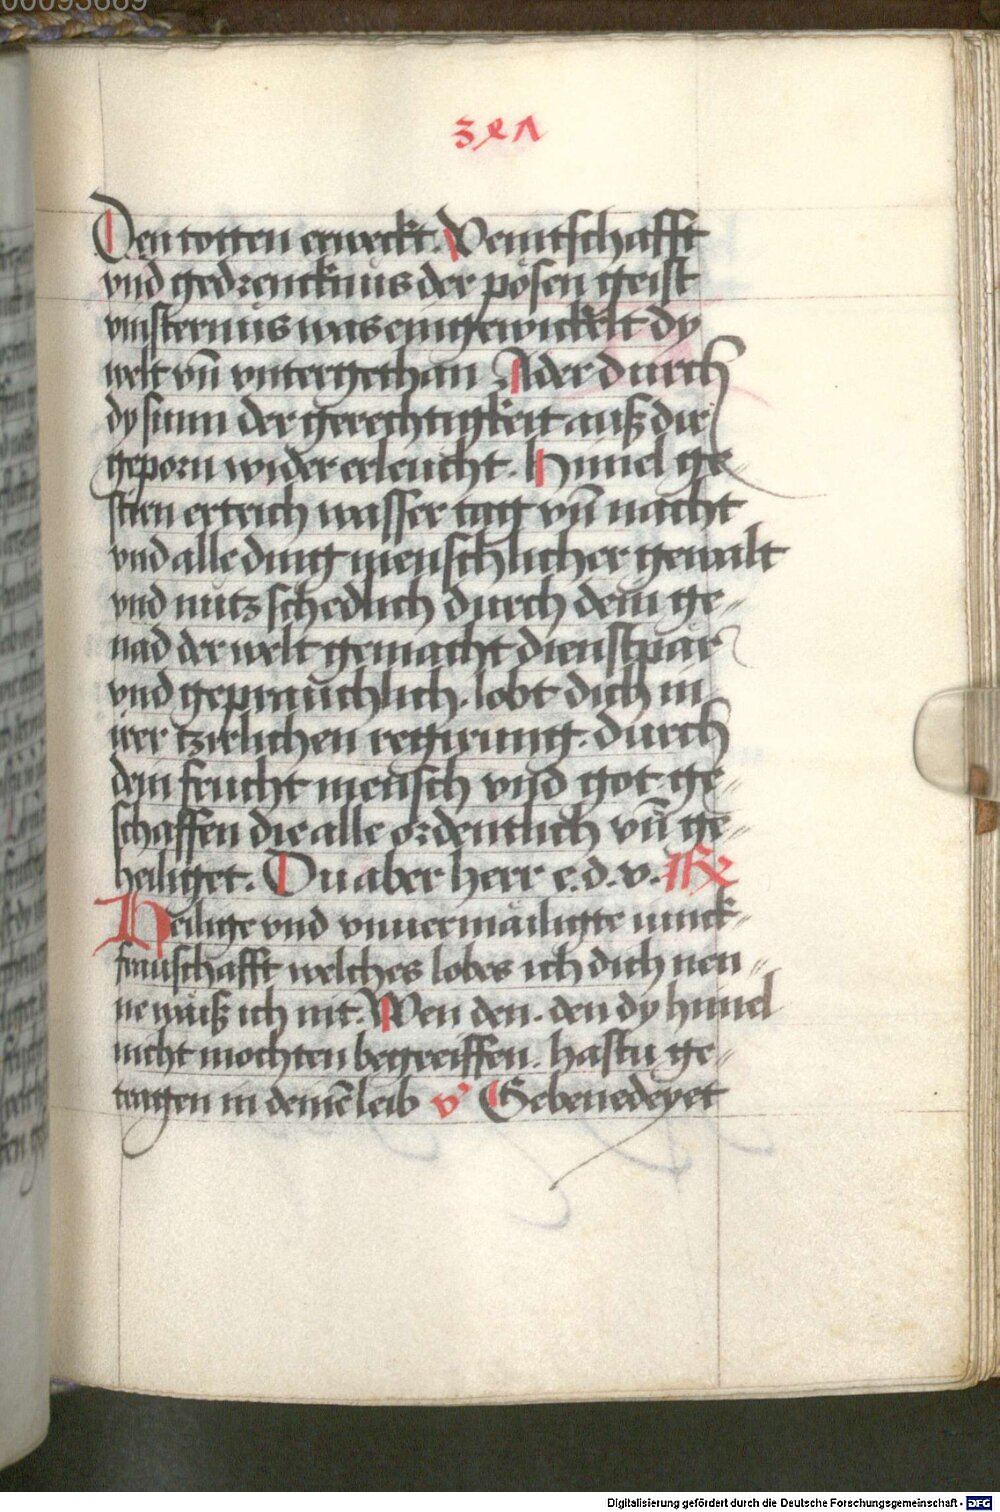 00093669
Den totten erweckt. Veintschafft
vnd gedrencknus der pösen geist
vinsternus was eingewickelt dy
welt vn̄ vntergethan Ader durch
dy sunn der gerechtigkeit auß dir
geporn wider erleucht. Himel ge⸗
stirn ertrich wasser tag vn̄ nacht
vnd alle ding menschlicher gewalt
vnd nutz schedlich durch dein ge⸗
nad der welt gemacht dienstpar
vnd geprauchlich. lobt dich in
irer tzirlichen regirung. durch
dein frucht mensch vnd got ge⸗
schaffen die alle ordentlich vn̄ ge⸗
heiliget. Du aber herr e. d. v.
Heilige vnd vnuermailigte iunck⸗
frauschafft welches lobes ich dich nen⸗
ne waiß ich nit. Wen den. den dy himel
nicht mochten begreiffen. hastu ge⸗
tragen in deinē leib v' Gebenedeyet
Digitalisierung gefördert durch die Deutsche Forschungsgemeinschaft - DFG